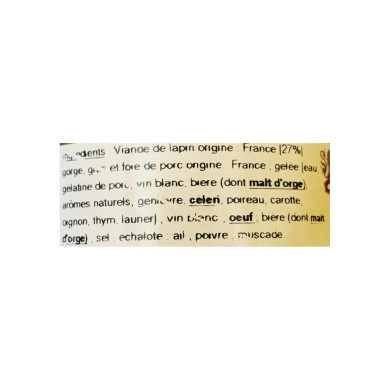 Viande de lapin origine : France (27%)
gorge, et foie de porc origine : France , gelée (eau,
gelatine de porc, vin blanc, biere (dont malt d'orge),
arômes naturels, genievre, celeri, poireau, carotte,
oignon, thym, laurier) , vin blanc , oeuf , biere (dont malt
d'orge) , sel , echalote , ail , poivre , muscade.